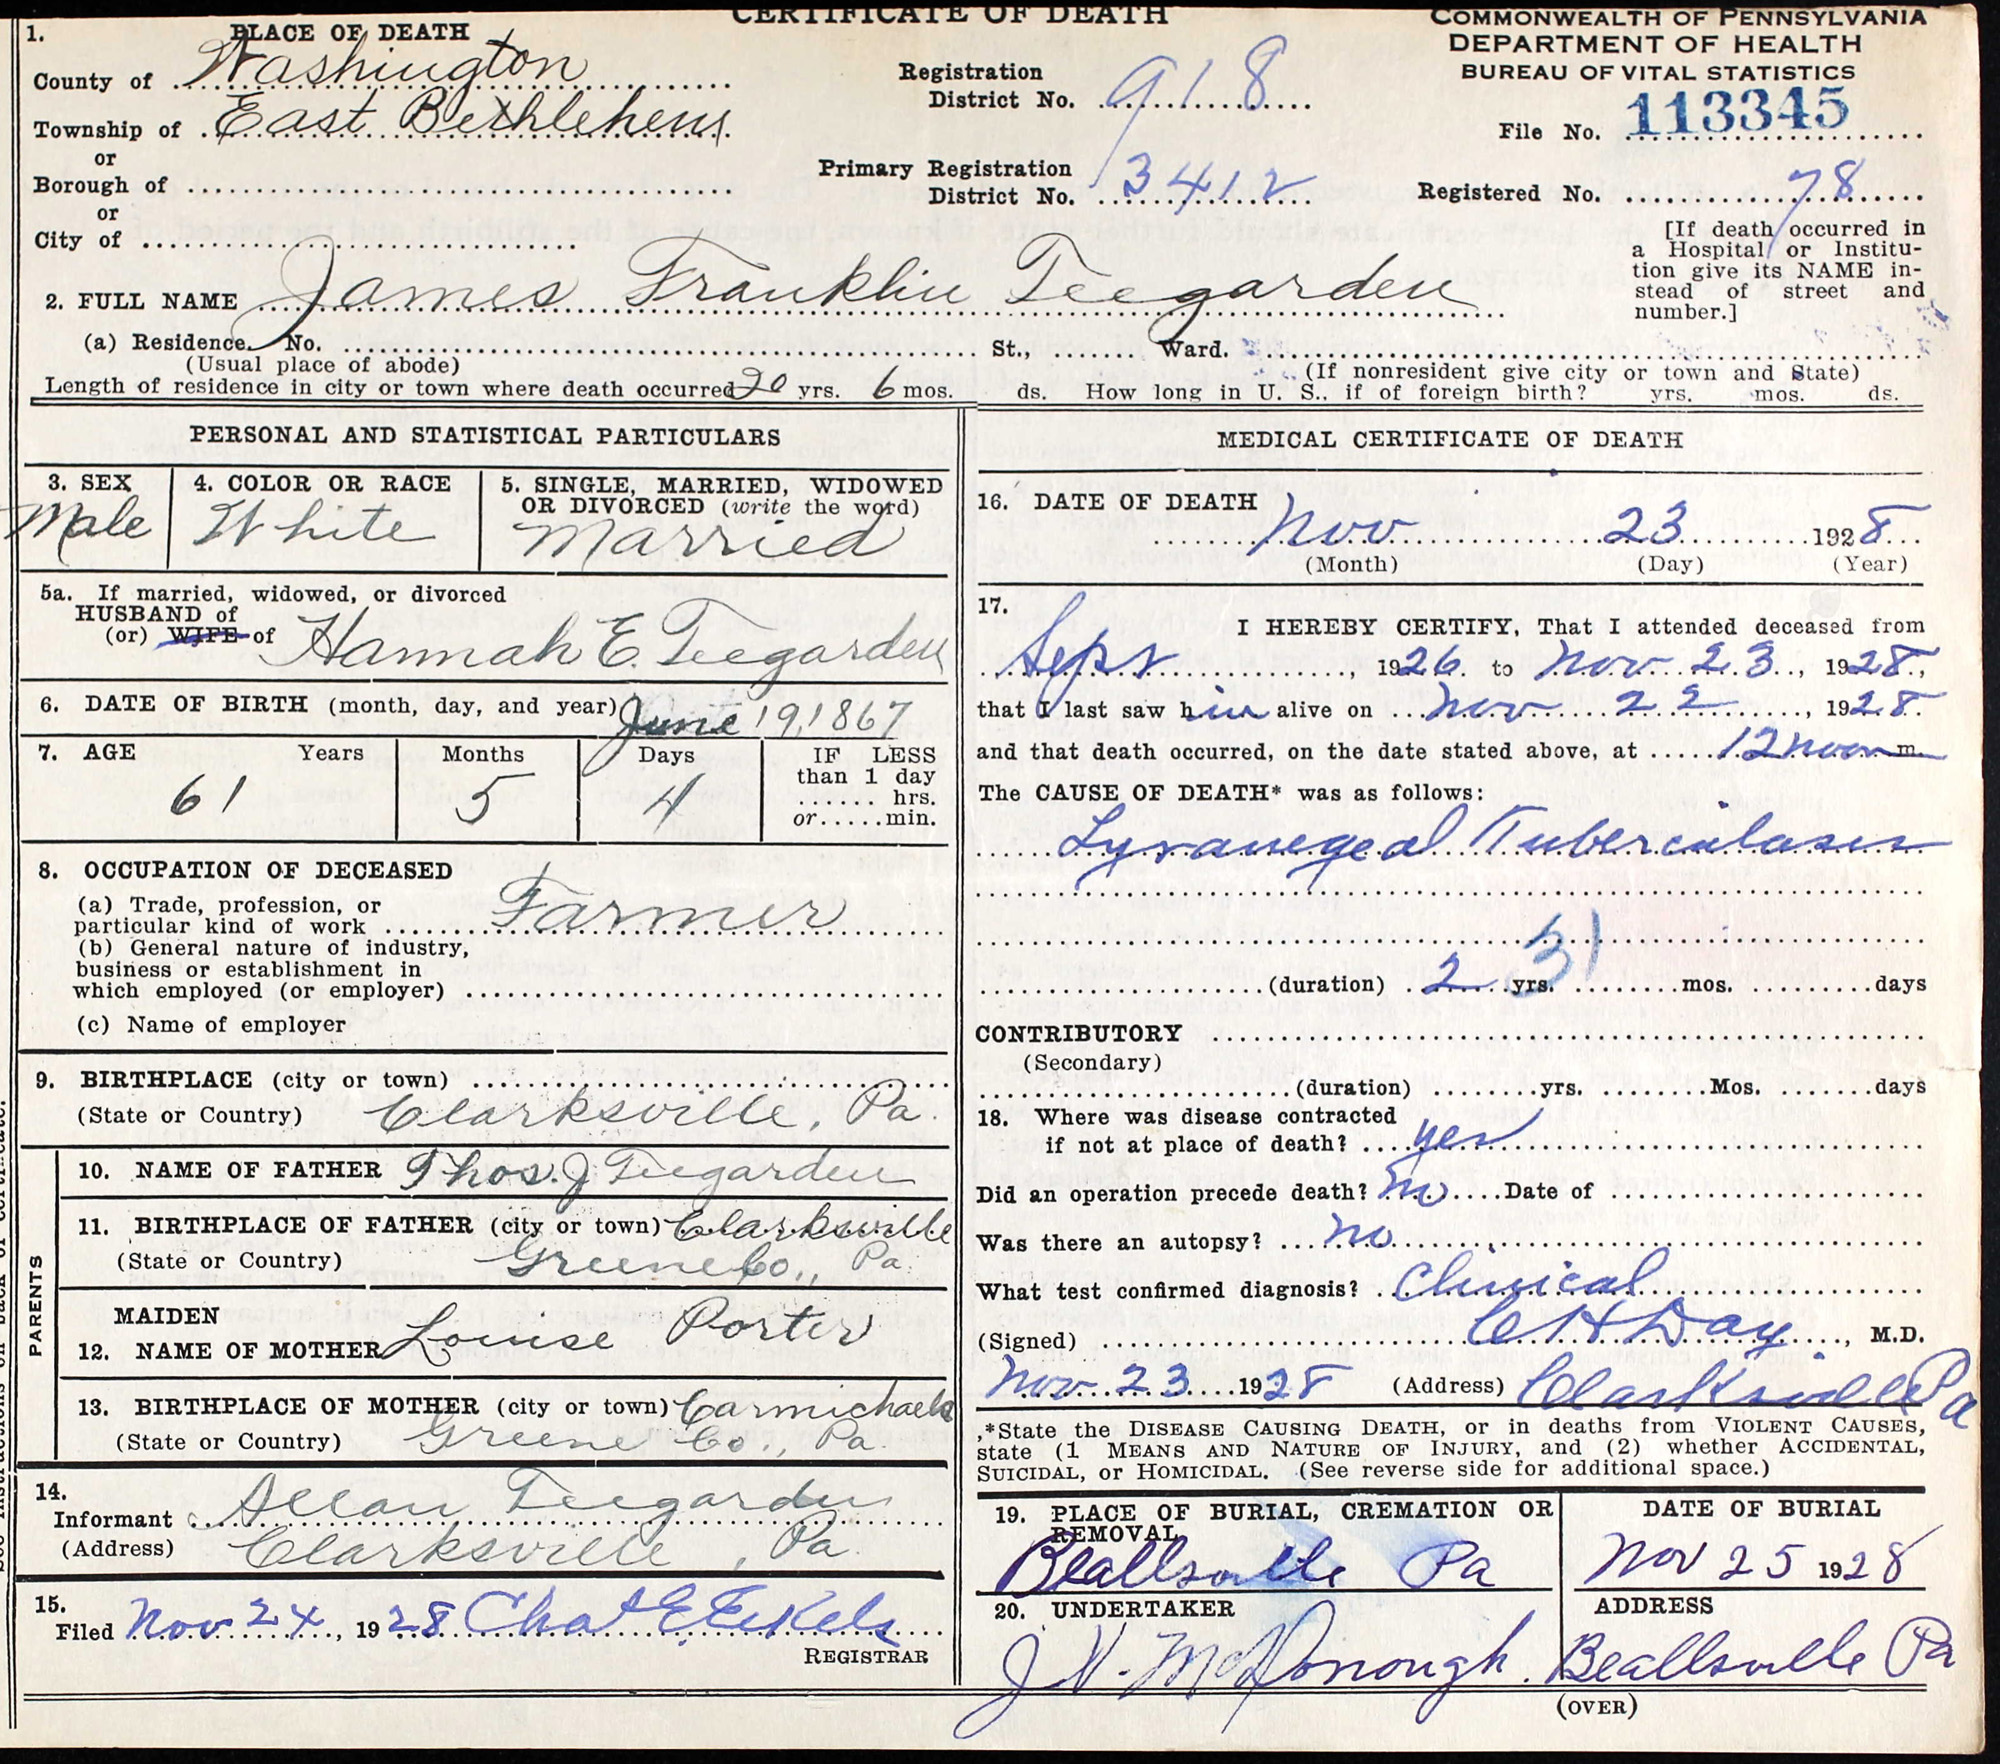 CERTIFICATE OF DEATH
COMMONWEALTH OF PENNSYLVANIA
DEPARTMENT OF HEALTH
BUREAU OF VITAL STATISTICS
1. PLACE OF DEATH
County of Washington
Township of East Bethlehem
or
Borough of
or
City of
Registration District No. 918
Primary Registration District No. 3412
File No. 113345
Registered No. 78
[If death occurred in
a Hospital or Institu-
tion give its NAME in-
stead of street and
number.]
2. FULL NAME James Franklin Teegarden
(a) Residence. No. St., Ward.
(Usual place of abode) (If nonresident give city or town and State)
Length of residence in city or town where death occurred 20 yrs. 6 mos. ds. How long in U. S., if of foreign birth? yrs. mos. ds.
PERSONAL AND STATISTICAL PARTICULARS
3. SEX
Male
4. COLOR OR RACE
White
5. SINGLE, MARRIED, WIDOWED
OR DIVORCED (write the word)
Married
5a. If married, widowed, or divorced
HUSBAND of
(or) WIFE of Hannah E. Teegarden
6. DATE OF BIRTH (month, day, and year) June 19, 1867
7. AGE Years Months Days
61 5 4
IF LESS
than 1 day
hrs.
or.....min.
8. OCCUPATION OF DECEASED
(a) Trade, profession, or
particular kind of work Farmer
(b) General nature of industry,
business or establishment in
which employed (or employer)
(c) Name of employer
9. BIRTHPLACE (city or town)
(State or Country) Clarksville, Pa
PARENTS
10. NAME OF FATHER Thos. J Teegarden
11. BIRTHPLACE OF FATHER (city or town) Clarksville
(State or Country) Greene Co., Pa.
MAIDEN
12. NAME OF MOTHER Louise Porter
13. BIRTHPLACE OF MOTHER (city or town) Carmichaels
(State or Country) Greene Co., Pa.
14.
Informant Allan Teegarden
(Address) Clarksville, Pa.
15.
Filed Nov 24, 1928
REGISTRAR
MEDICAL CERTIFICATE OF DEATH
16. DATE OF DEATH
Nov 23 1928
(Month) (Day) (Year)
17.
I HEREBY CERTIFY, That I attended deceased from
Sept, 1926 to Nov 23, 1928,
that I last saw him alive on Nov 22, 1928
and that death occurred, on the date stated above, at 12 noon m.
The CAUSE OF DEATH* was as follows:
Lyranegeal Tuberculosis
31
(duration) 2 yrs. mos. days
CONTRIBUTORY
(Secondary)
(duration) yrs. Mos. days
18. Where was disease contracted
if not at place of death? yes
Did an operation precede death? no Date of
Was there an autopsy? no
What test confirmed diagnosis? Clinical
(Signed) C H Day, M.D.
Nov 23 1928 (Address) Clarksville Pa
*State the DISEASE CAUSING DEATH, or in deaths from VIOLENT CAUSES,
state (1 MEANS AND NATURE OF INJURY, and (2) whether ACCIDENTAL,
SUICIDAL, or HOMICIDAL. (See reverse side for additional space.)
19. PLACE OF BURIAL, CREMATION OR
REMOVAL
Beallsville Pa
DATE OF BURIAL
Nov 25 1928
20. UNDERTAKER
J V. McDonough
ADDRESS
Beallsville Pa
(OVER)